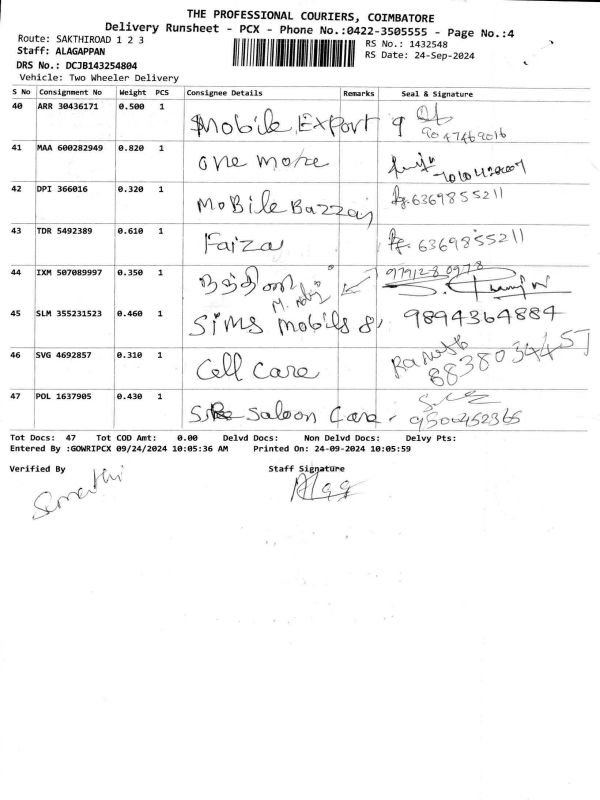 THE PROFESSIONAL COURIERS, COIMBATORE
Delivery Runsheet - PCX - Phone No.:0422-3505555 - Page No.:4
Route: SAKTHIROAD 1 2 3
RS No.: 1432548
Staff: ALAGAPPAN
RS Date: 24-Sep-2024
DRS No.: DCJB143254804
Vehicle: Two Wheeler Delivery
S No Consignment No Weight PCS Consignee Details Remarks Seal & Signature
40 ARR 30436171 0.500 1 Mobile Export 9
9047469016
41 MAA 600282949 0.820 1 one more
42 DPI 366016 0.320 1 MoBile Bazzar 6369855211
43 TDR 5492389 0.610 1 Faiza 6369855211
44 IXM 507089997 0.350 1 97912-80978
45 SLM 355231523 0.460 1 Sims Mobils 9894364884
46 SVG 4692857 0.310 1 Cell Care
8838034457
47 POL 1637905 0.430 1 Saloon Care 9500452365
Tot Docs: 47 Tot COD Amt: 0.00 Delvd Docs: Non Delvd Docs: Delvy Pts:
Entered By :GOWRIPCX 09/24/2024 10:05:36 AM Printed On: 24-09-2024 10:05:59
Verified By Staff Signature